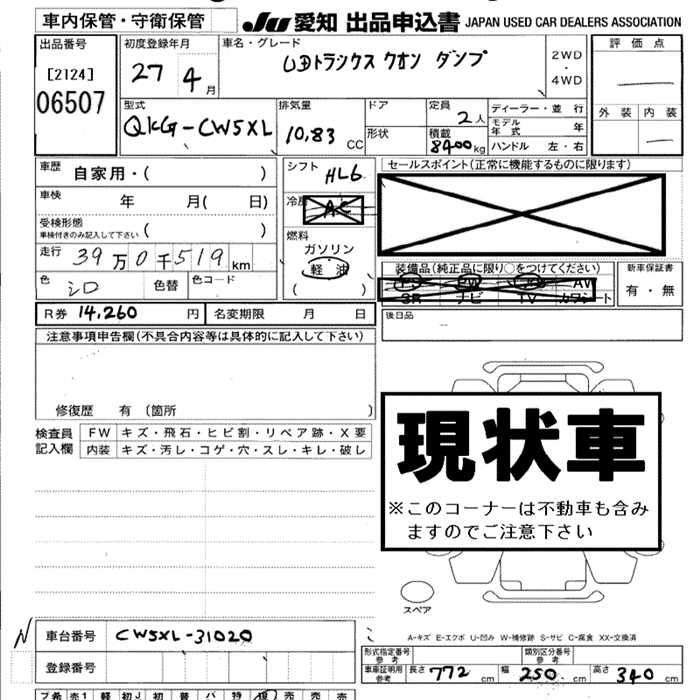 車内保管・守衛保管
JU 愛知 出品申込書 JAPAN USED CAR DEALERS ASSOCIATION
出品番号
[2124]
06507
初度登録年月
27 4月
車名・グレード
UDトランクス クオン ダンプ
2WD
・
4WD
評価点
外装 内装
型式
QKG-CW5XL
排気量
10.83 CC
ドア
形状
定員
2人
積載
8400kg
ディーラー・並行
モデル年式 年
ハンドル 左・右
車歴
自家用・( )
車検 年 月( 日)
受検形態
車検付きのみ記入して下さい ( )
走行
39万0千519km
色
シロ
色替
色コード
シフト
HL6
冷房
AC
燃料
ガソリン
軽油
( )
セールスポイント(正常に機能するものに限ります)
装備品(純正品に限り○をつけてください)
PS PW AV
SR ナビ TV カワシート
新車保証書
有・無
R券 14,260 円
名変期限 月 日
後日品
注意事項申告欄(不具合内容等は具体的に記入して下さい)
修復歴 有 (箇所 )
検査員
記入欄
FW キズ・飛石・ヒビ割・リペア跡・X要
内装 キズ・汚レ・コゲ・穴・スレ・キレ・破レ
現状車
※このコーナーは不動車も含み
ますのでご注意下さい
スペア
A-キズ E-エクボ U-凹み W-補修跡 S-サビ C-腐食 XX-交換済
N
車台番号 CW5XL-31020
登録番号
形式指定番号
参考
類別区分番号
参考
車庫証明用
参考
長さ 772 cm
幅 250 cm
高さ 340 cm